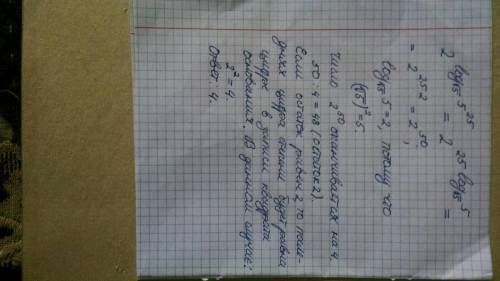 2^{log_{√5} 5^{25}} = 2^{25 log_{√5} 5} =
= 2^{25·2} = 2^{50};
log_{√5} 5 = 2, потому что
(√5)² = 5.
Число 2^{50} оканчивается на 4.
50 : 4 = 48 (остаток 2)
Если остаток равен 2 то после-
дняя цифра числа будет равна
цифре в записи квадрата
основания. В данном случае:
2² = 4.
Ответ: 4.